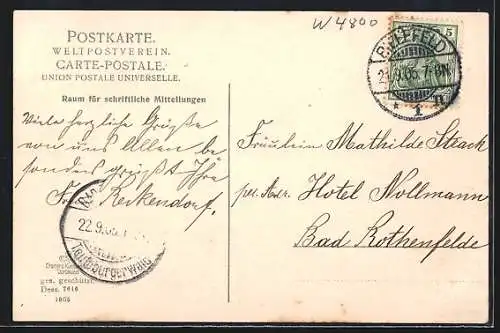 W 4800
POSTKARTE.
WELTPOSTVEREIN.
CARTE-POSTALE.
UNION POSTALE UNIVERSELLE.
Raum für schriftliche Mitteilungen
Viele herzliche Grüße
von uns Allen be
sonders grüßt Ihre
Fr. Reckendorf.
22.9.05.
TEUTOBURGERWALD
ges. geschützt.
Dess. 7616
1905
5
BIELEFELD
21.9.05. 7
* 1 n
Fräulein Mathilde Steack
per Adr. Hotel Nollmann
Bad Rothenfelde